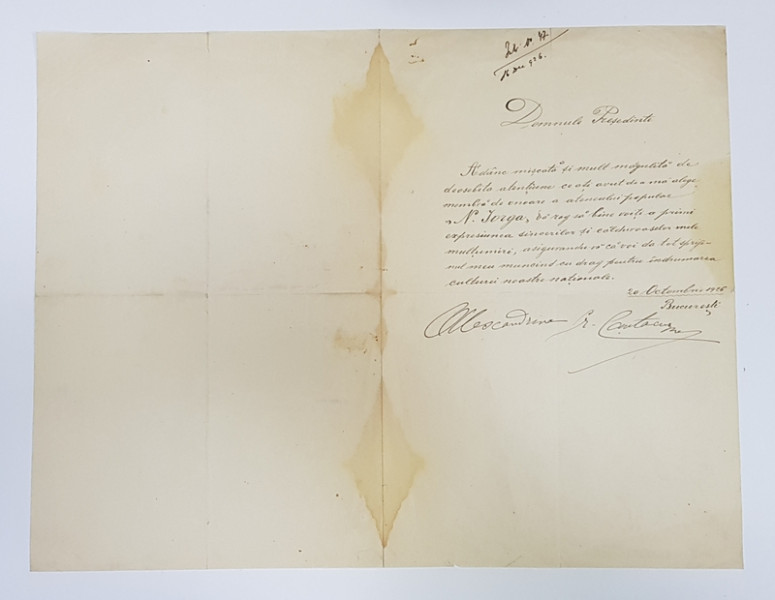 Domnule Președinte
Adânc mișcată și mult măgulită de
deosebita atențiune ce ați avut de a mă alege
membră de onoare a ateneului popular
„N. Iorga", vă rog să bine voiți a primi
expresiunea sincerilor și călduroaselor mele
mulțumiri, asigurându-vă că voi da tot spriji-
nul meu muncind cu drag pentru îndrumarea
culturei noastre naționale.
20 Octombrie 1926
București
Alexandrina Gr. Cantacuzino